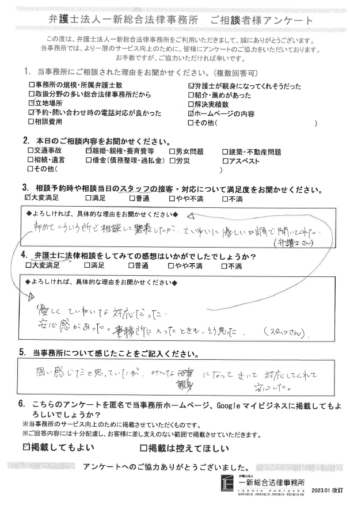 弁護士法人一新総合法律事務所　ご相談者様アンケート
この度は、弁護士法人一新総合法律事務所をご利用いただきまして、誠にありがとうございます。
当事務所では、より一層のサービス向上のために、皆様にアンケートのご協力をいただいております。
お手数ですが、ご協力いただければ幸いです。
1．当事務所にご相談された理由をお聞かせください。（複数回答可）
□事務所の規模・所属弁護士数　☑弁護士が親身になってくれそうだった
□取扱分野の多い総合法律事務所だから　□紹介・薦めがあった
☑立地場所　□解決実績数
☑予約・問い合わせ時の電話対応が良かった　☑ホームページの内容
□相談費用　□その他(　)
2．本日のご相談内容をお聞かせください。
□交通事故　☑離婚・親権・養育費等　□男女問題　□建築・不動産問題
□相続・遺言　□借金(債務整理・過払金)　□労災　□アスベスト
□その他(　)
3．相談予約時や相談当日のスタッフの接客・対応について満足度をお聞かせください。
☑大変満足　□満足　□普通　□やや不満　□不満
◆よろしければ、具体的な理由をお聞かせください◆
初めてこういう所で相談して緊張したが、ていねいに優しい口調で聞いてくれた。
（弁護士さん）
4．弁護士に法律相談をしてみての感想はいかがでしたでしょうか？
☑大変満足　□満足　□普通　□やや不満　□不満
◆よろしければ、具体的な理由をお聞かせください◆
優しくていねいな対応だった。
安心感があった。事務所に入ったときも
（スタッフさん）
5．当事務所について感じたことをご記入ください。
固い感じだと思っていたが、みんな親身になって 対応してくれて
安心した。
6．こちらのアンケートを匿名で当事務所ホームページ、Googleマイビジネスに掲載してもよ
ろしいでしょうか？
※当事務所のサービス向上のために掲載させていただくものです。
※ご回答内容には十分配慮し、お客様に差し支えのない範囲で掲載させていただきます。
☑掲載してもよい　□掲載は控えてほしい
アンケートへのご協力ありがとうございました。
弁護士法人
一新総合法律事務所
2023.01 改訂